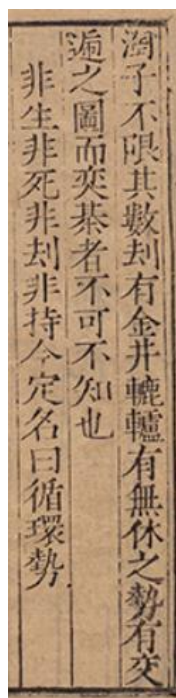 濶子不限其數刦有金井轆轤有無休之勢有交
遞之圖而奕棊者不可不知也
非生非死非刦非持今定名曰循環勢